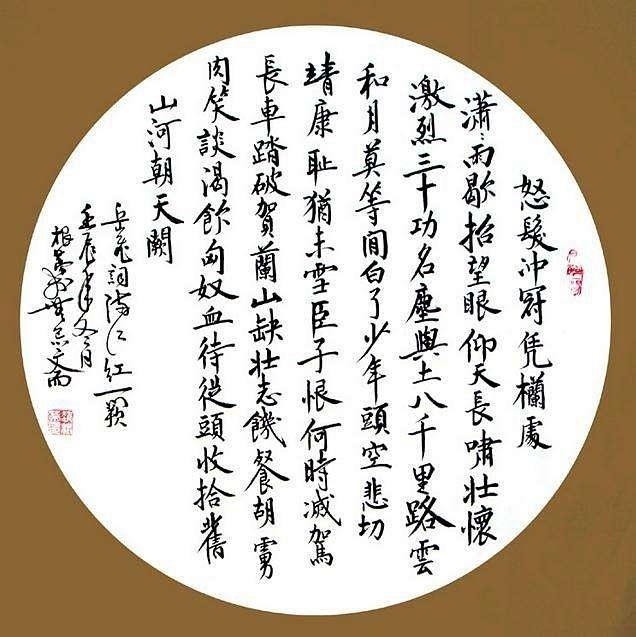 怒髮冲冠凭欄處
瀟々雨歇抬望眼仰天長嘯壯懷
激烈三十功名塵與土八千里路雲
和月莫等閒白了少年頭空悲切
靖康恥猶未雪臣子恨何時滅駕
長車踏破賀蘭山缺壯志饑餐胡虜
肉笑談渴飲匈奴血待從頭收拾舊
山河朝天闕
岳飛詞滿江紅一闋
壬辰年冬月